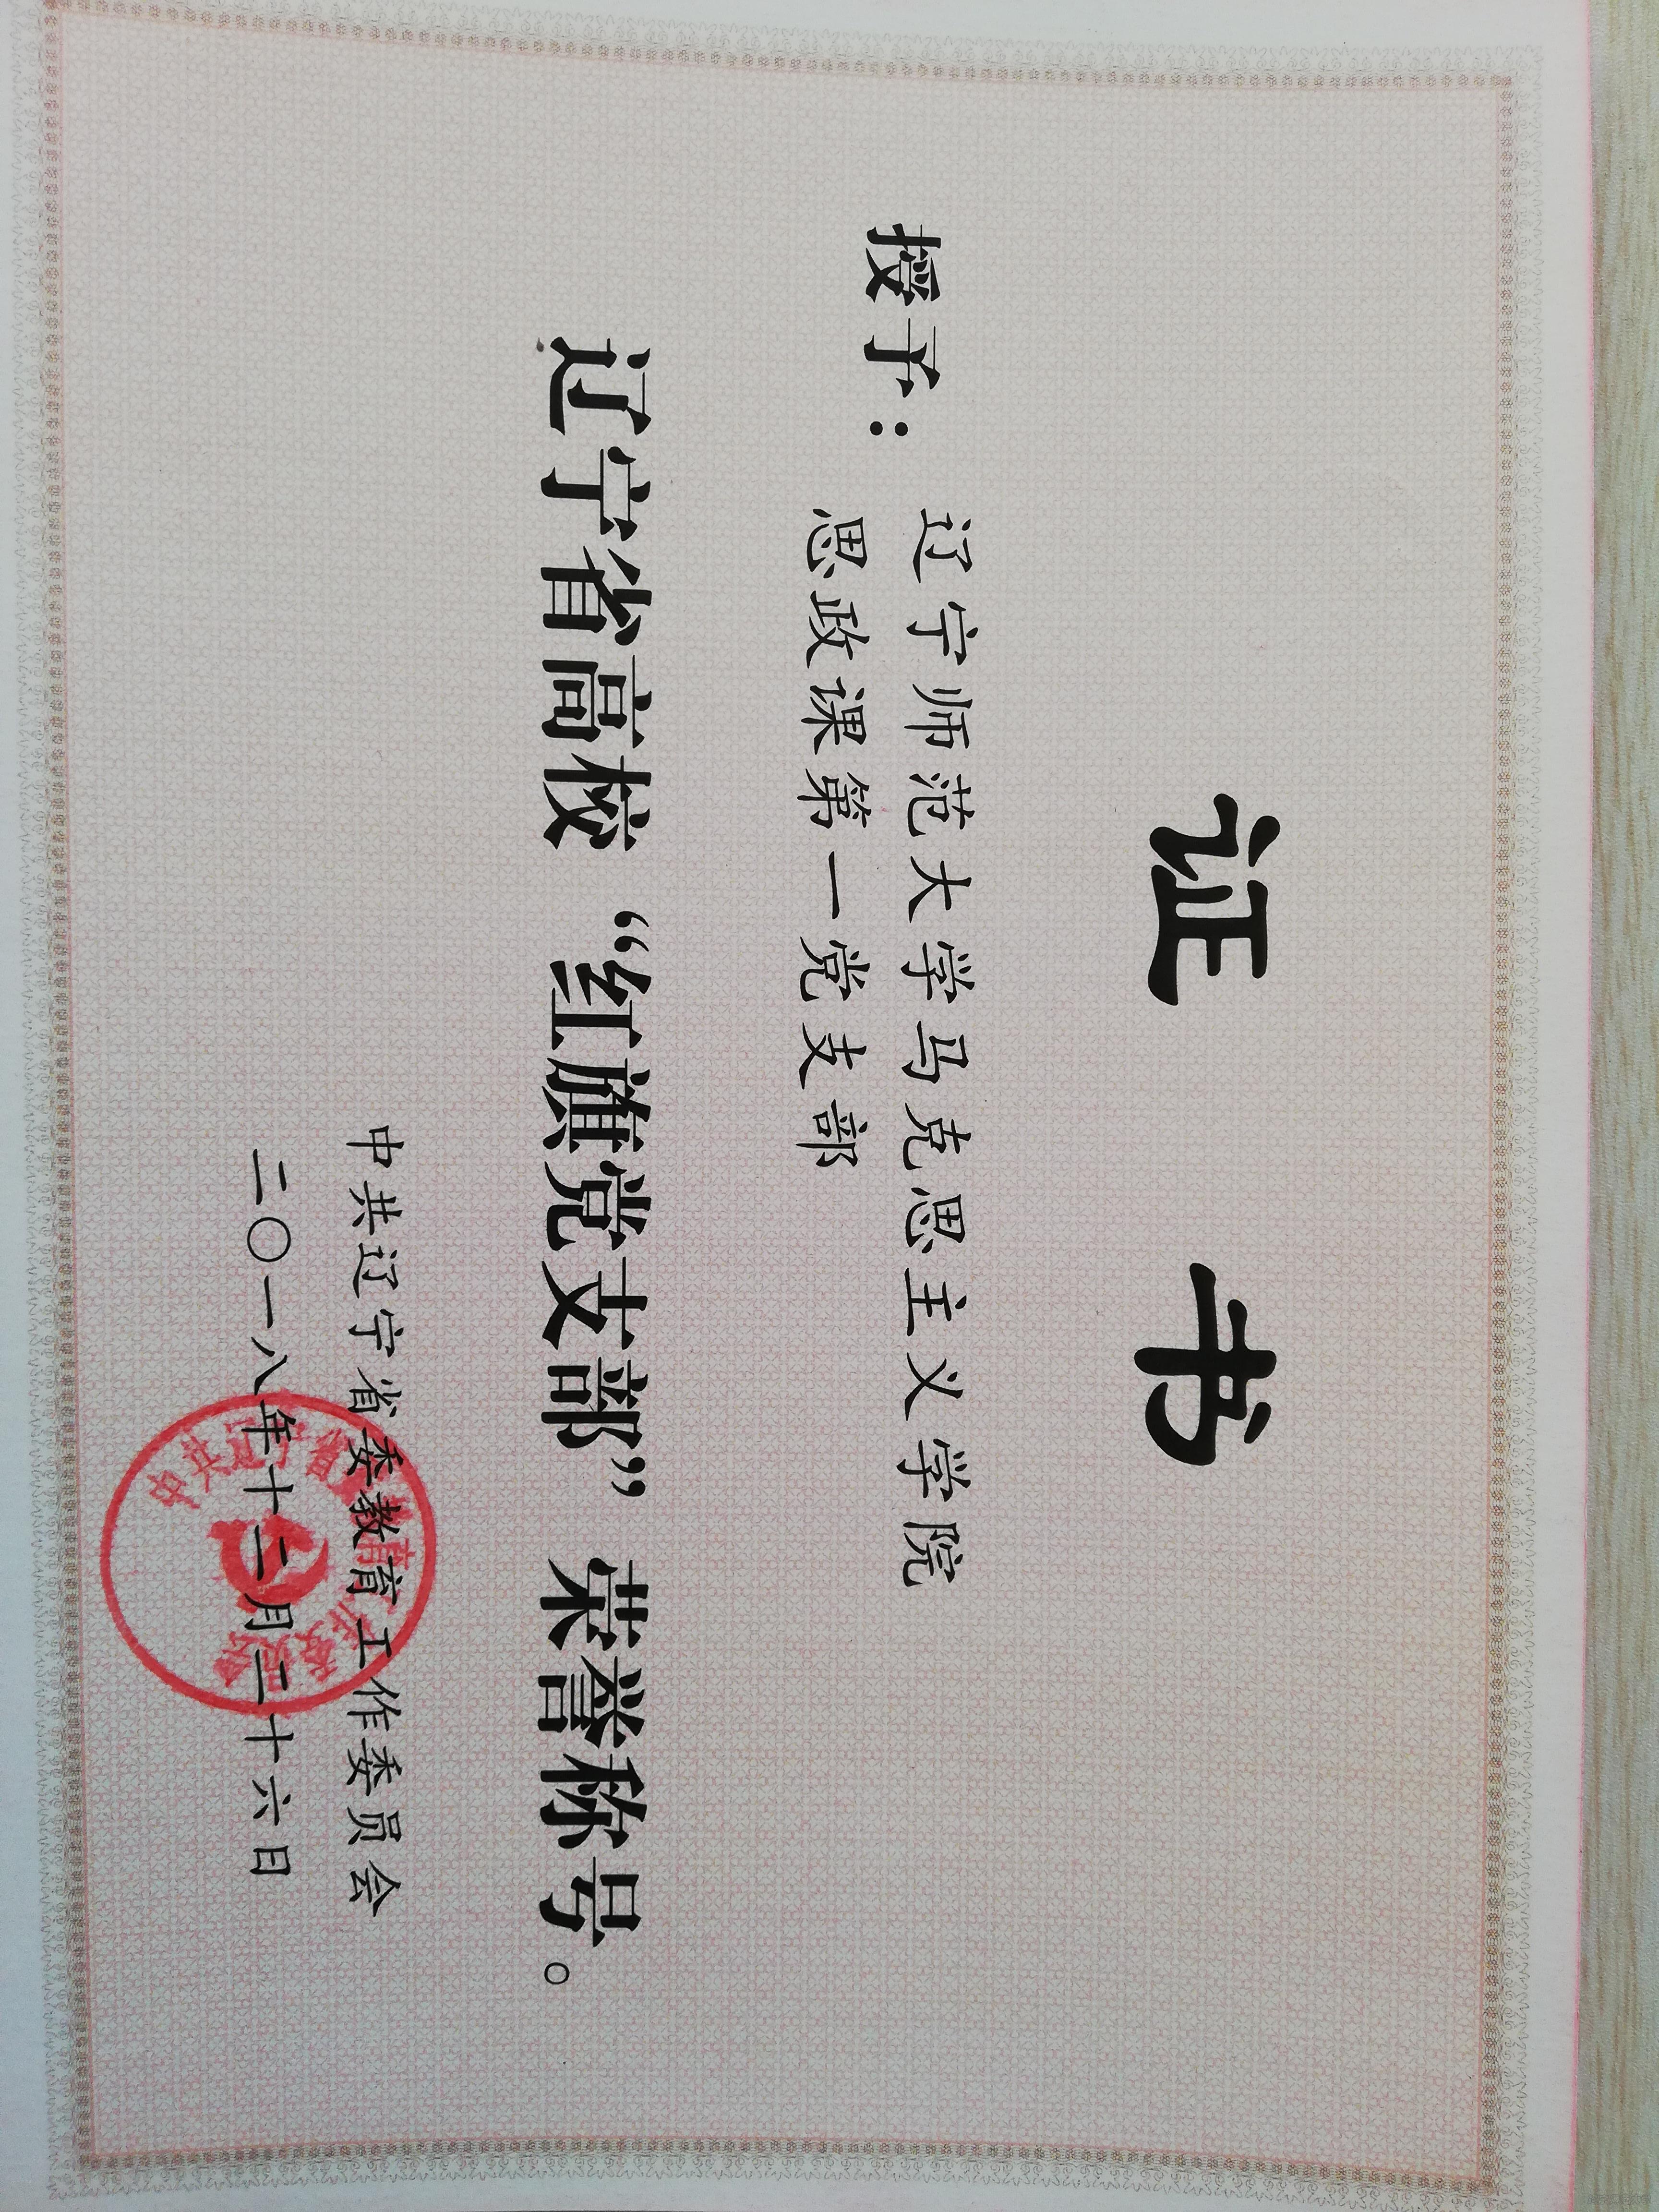 证 书
授予：
辽宁师范大学马克思主义学院
思政课第一党支部
辽宁省高校“红旗党支部”荣誉称号。
中共辽宁省委教育工作委员会
二〇一八年十二月二十六日
中共辽宁省委教育工作委员会